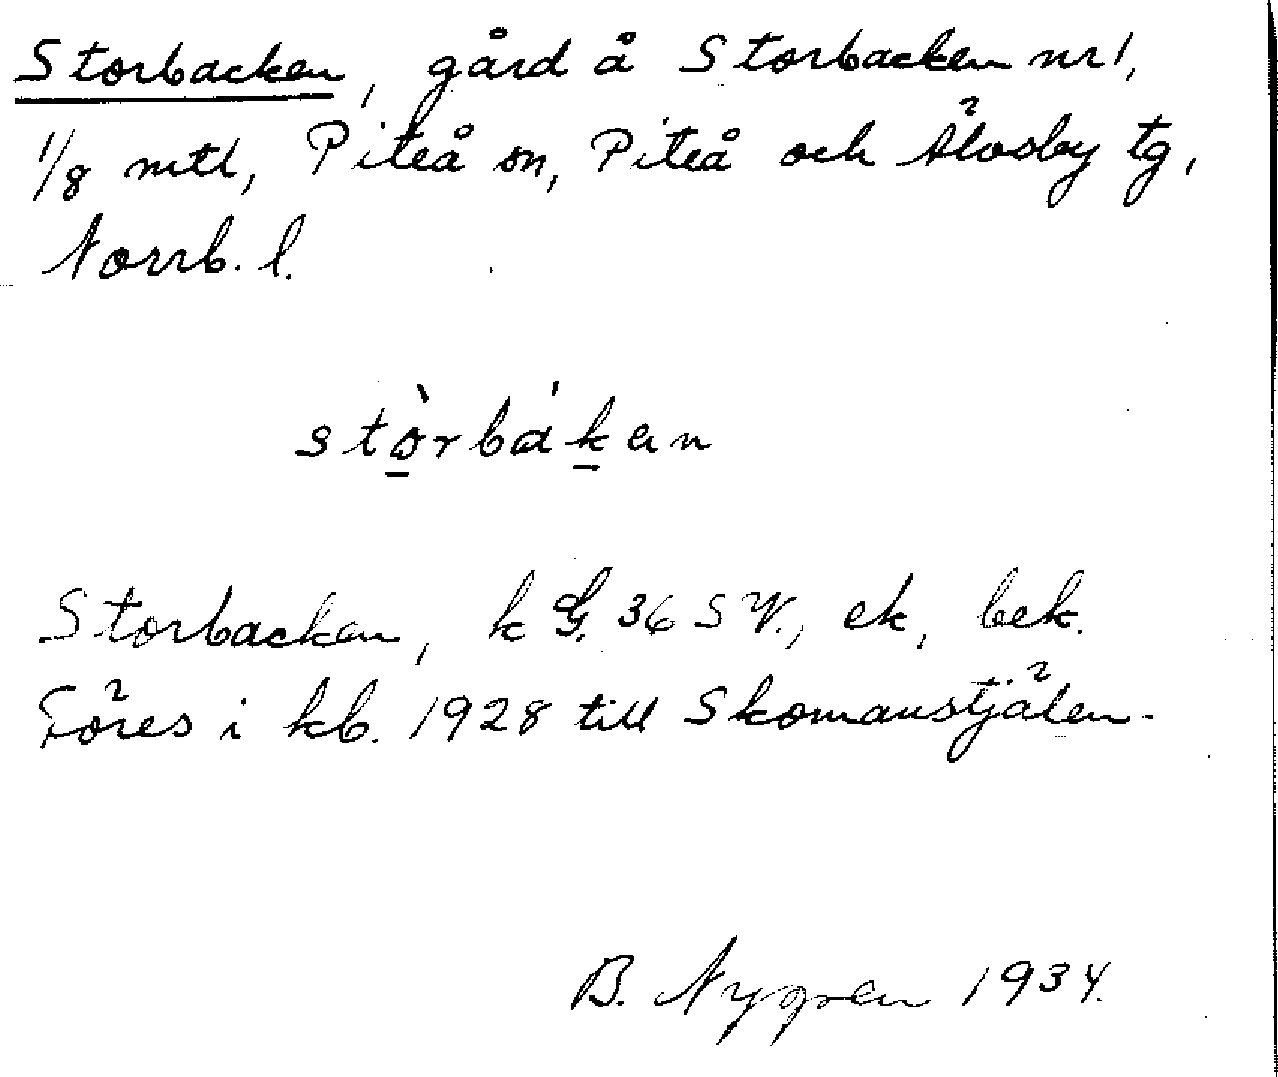 Storbacken, gård å Storbacken nr 1,
1/8 mtl, Piteå sn, Piteå och Älvsby tg,
Norrb. l.
stò̱rbáḵen
Storbacken, k G. 36 S V., ek, bek.
Föres i kb. 1928 till Skomanstjälen.
B. Nygren 1934.